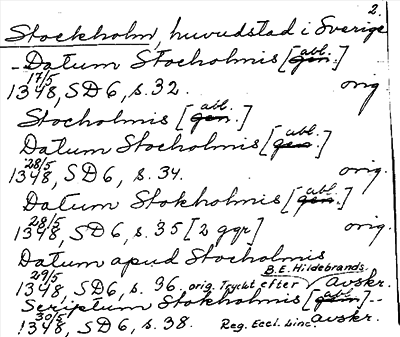 2.
Stockholm, huvudstad i Sverige
- Datum Stocholmis [gen. abl.]
17/5 1348, SD 6, s. 32. orig
Stocholmis [gen. abl.]
Datum Stocholmis [gen. abl.]
28/5 1348, SD 6, s. 34. orig.
Datum Stokholmis [gen. abl.]
28/5 1348, SD 6, s. 35 [2 ggr] orig.
Datum apud Stocholmis
29/5 1348 SD 6, s. 36. orig. Tryckt efter B.E. Hildebrands avskr.
Scriptum Stokholmis [gen. abl.] --
30/5 1348, SD 6, s. 38. Reg. Eccl. Linc. avskr.